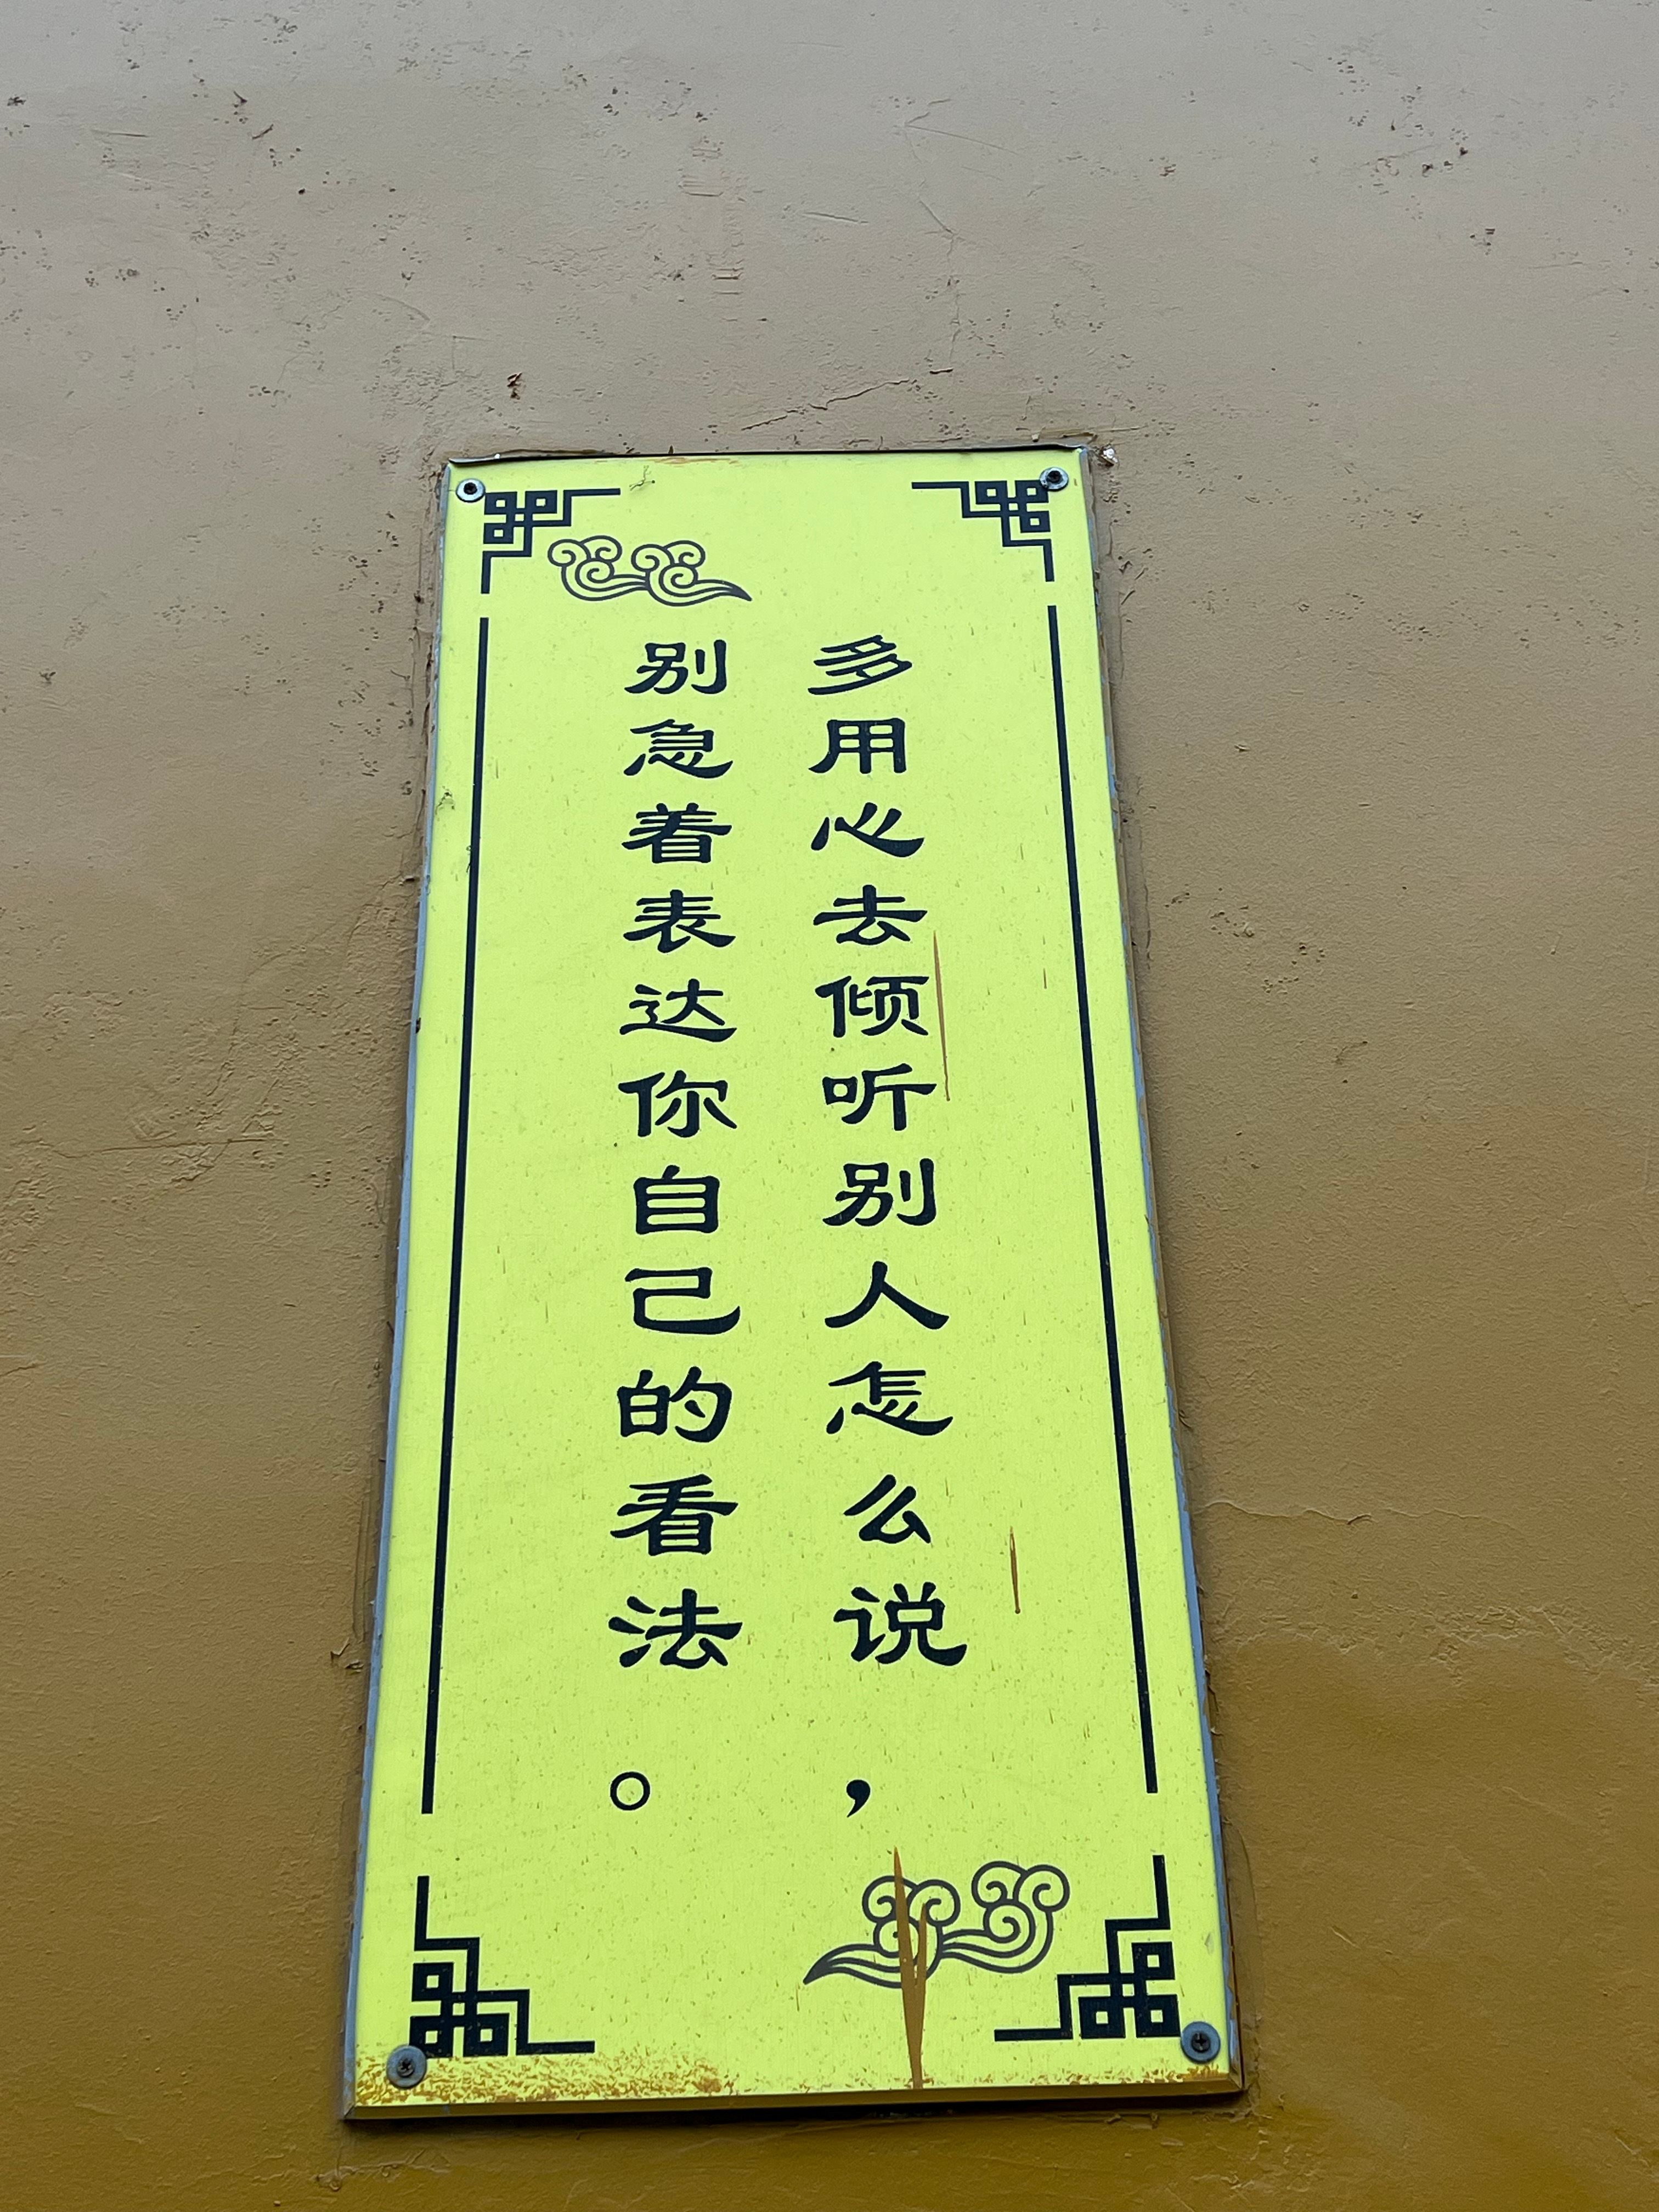 多用心去倾听别人怎么说，
别急着表达你自己的看法。